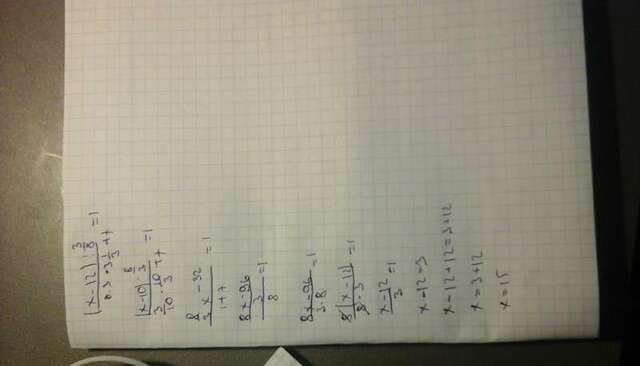 ((x-12) : 3/8) / (0.3 · 3 1/3 + 7) = 1
((x-12) · 8/3) / (3/10 · 10/3 + 7) = 1
(8/3 x - 32) / (1+7) = 1
((8x-96)/3) / 8 = 1
(8x-96) / (3·8) = 1
8(x-12) / (8·3) = 1
(x-12) / 3 = 1
x-12=3
x-12+12=3+12
x=3+12
x=15